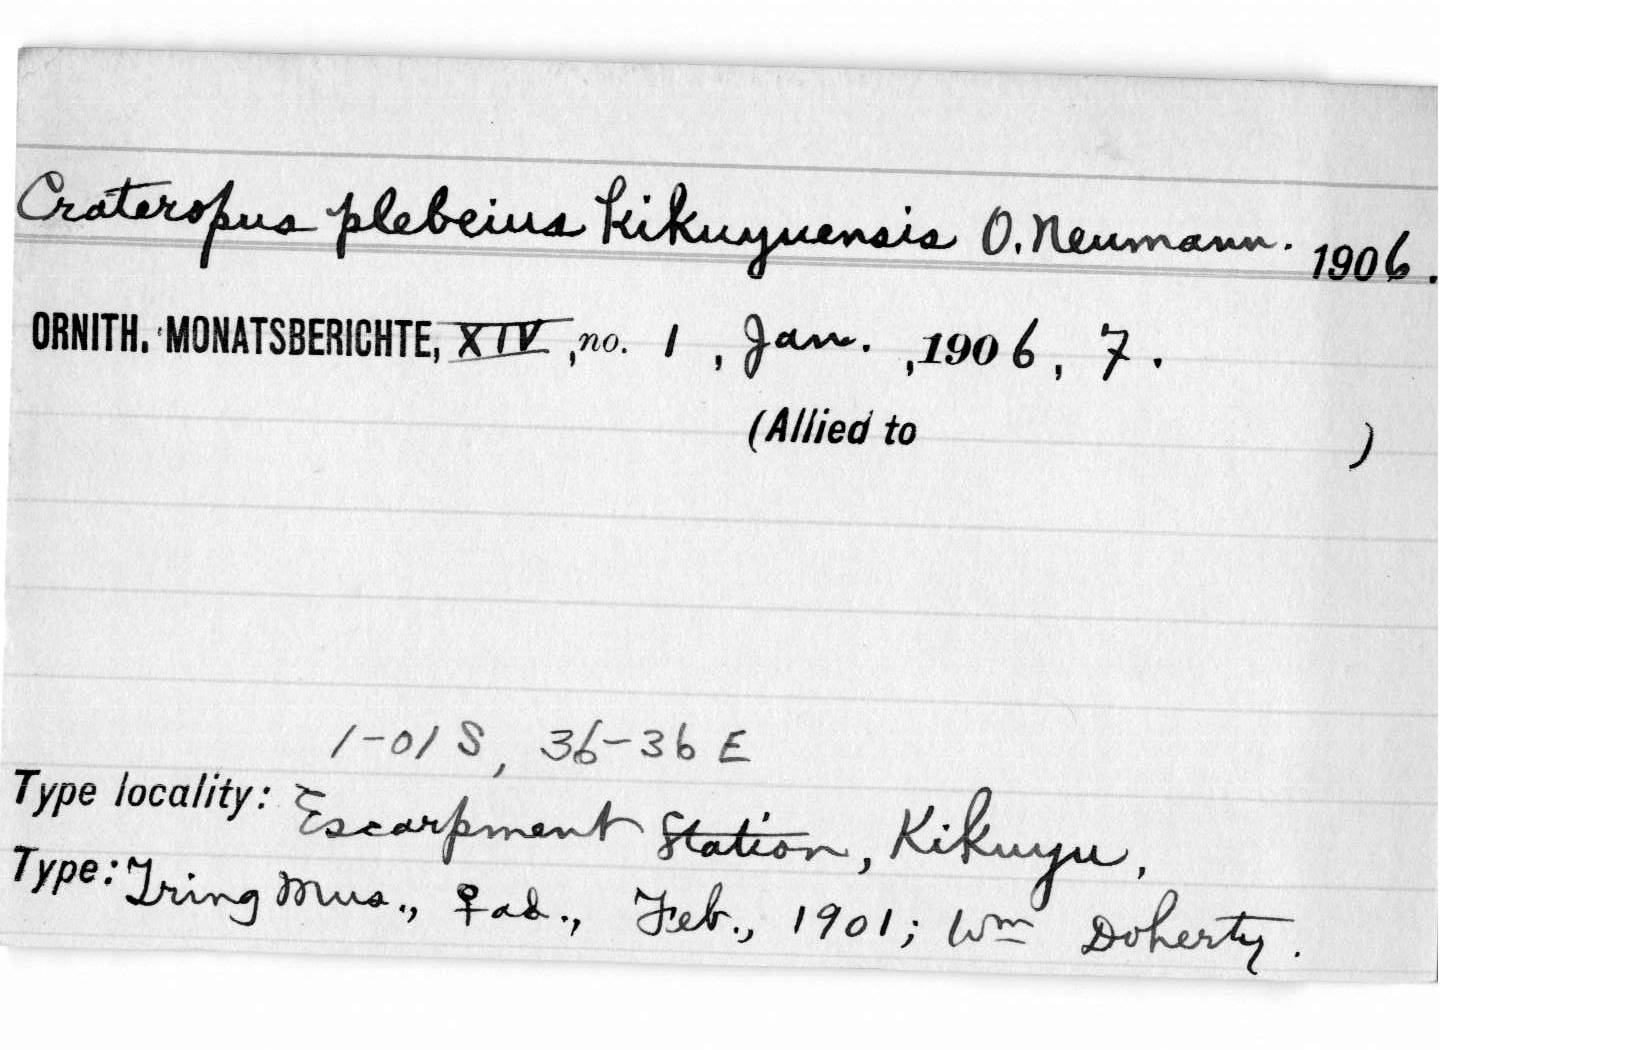 Crateropus plebeius kikuyuensis O. Neumann. 1906.
ORNITH. MONATSBERICHTE, XIV, no. 1, Jan., 1906, 7.
(Allied to )
1-01 S, 36-36 E
Type locality: Escarpment Station, Kikuyu,
Type: Tring Mus., ♀ ad., Feb., 1901; Wm Doherty.